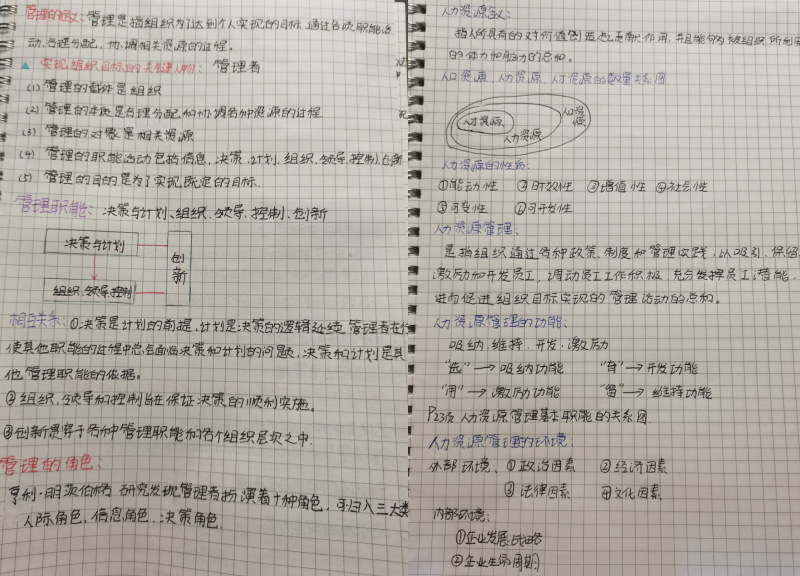 管理的含义：管理是指组织为了达到个人实现的目标，通过各项职能活
动，合理分配、协调相关资源的过程。
▲ 实现组织目标的关键人物：管理者
(1) 管理的载体是组织
(2) 管理的本质是合理分配和协调各种资源的过程.
(3) 管理的对象是相关资源
(4) 管理的职能活动包括信息、决策、计划、组织、领导、控制、创新
(5) 管理的目的是为了实现既定的目标.
管理职能：决策与计划、组织、领导、控制、创新
决策与计划
创新
组织、领导、控制
相互关系：①决策是计划的前提，计划是决策的逻辑延续，管理者在行
使其他职能的过程中总会面临决策和计划的问题，决策和计划是其
他管理职能的依据。
②组织、领导和控制旨在保证决策的顺利实施。
③创新贯穿于各种管理职能和各个组织层次之中.
管理的角色：
亨利·明茨伯格 研究发现管理者扮演着十种角色，可归入三大类
人际角色，信息角色，决策角色.
人力资源含义：
指人所具有的对价值创造起贡献作用，并且能够被组织所利用
的体力和脑力的总和。
人口资源、人力资源、人才资源的数量关系图
人才资源
人力资源
人口资源
人力资源的性质：
①能动性 ②时效性 ③增值性 ④社会性
⑤可变性 ⑥可开发性
人力资源管理：
是指组织通过各种政策、制度和管理实践，以吸引、保留、
激励和开发员工，调动员工工作积极，充分发挥员工潜能，
进而促进组织目标实现的管理活动的总和。
人力资源管理的功能：
吸纳、维持、开发、激励
“选”→吸纳功能 “育”→开发功能
“用”→激励功能 “留”→维持功能
P23页 人力资源管理基本职能的关系图
人力资源管理的环境：
外部环境：①政治因素 ②经济因素
③法律因素 ④文化因素
内部环境：
①企业发展战略
②企业生命周期